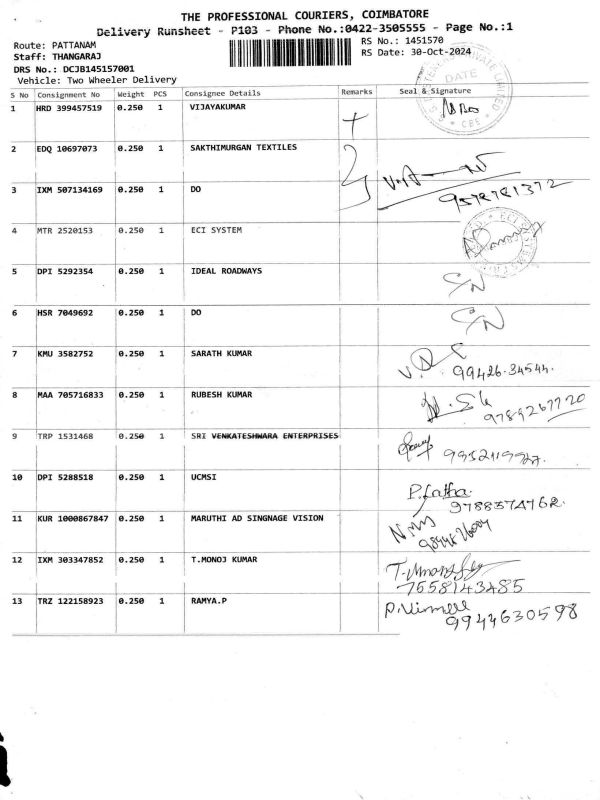 THE PROFESSIONAL COURIERS, COIMBATORE
Delivery Runsheet - P103 - Phone No.:0422-3505555 - Page No.:1
Route: PATTANAM
RS No.: 1451570
Staff: THANGARAJ
RS Date: 30-Oct-2024
DRS No.: DCJB145157001
Vehicle: Two Wheeler Delivery
DATE
CBE
S No Consignment No Weight PCS Consignee Details Remarks Seal & Signature
1 HRD 399457519 0.250 1 VIJAYAKUMAR
2 EDQ 10697073 0.250 1 SAKTHIMURGAN TEXTILES
3 IXM 507134169 0.250 1 DO
4 MTR 2520153 0.250 1 ECI SYSTEM
5 DPI 5292354 0.250 1 IDEAL ROADWAYS
6 HSR 7049692 0.250 1 DO
7 KMU 3582752 0.250 1 SARATH KUMAR
99426 34544.
8 MAA 705716833 0.250 1 RUBESH KUMAR
9789267720
9 TRP 1531468 0.250 1 SRI VENKATESHWARA ENTERPRISES
10 DPI 5288518 0.250 1 UCMSI
P. Latha.
9788574762.
11 KUR 1000867847 0.250 1 MARUTHI AD SINGNAGE VISION
12 IXM 303347852 0.250 1 T.MONOJ KUMAR
7558143485
13 TRZ 122158923 0.250 1 RAMYA.P
9944630598